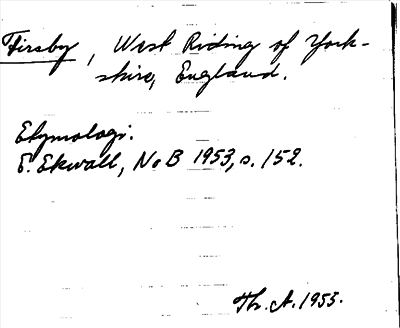 Firsby, West Riding of York-
shire, England.
Etymologi.
E. Ekwall, NoB 1953, s. 152.
Th. A. 1955.